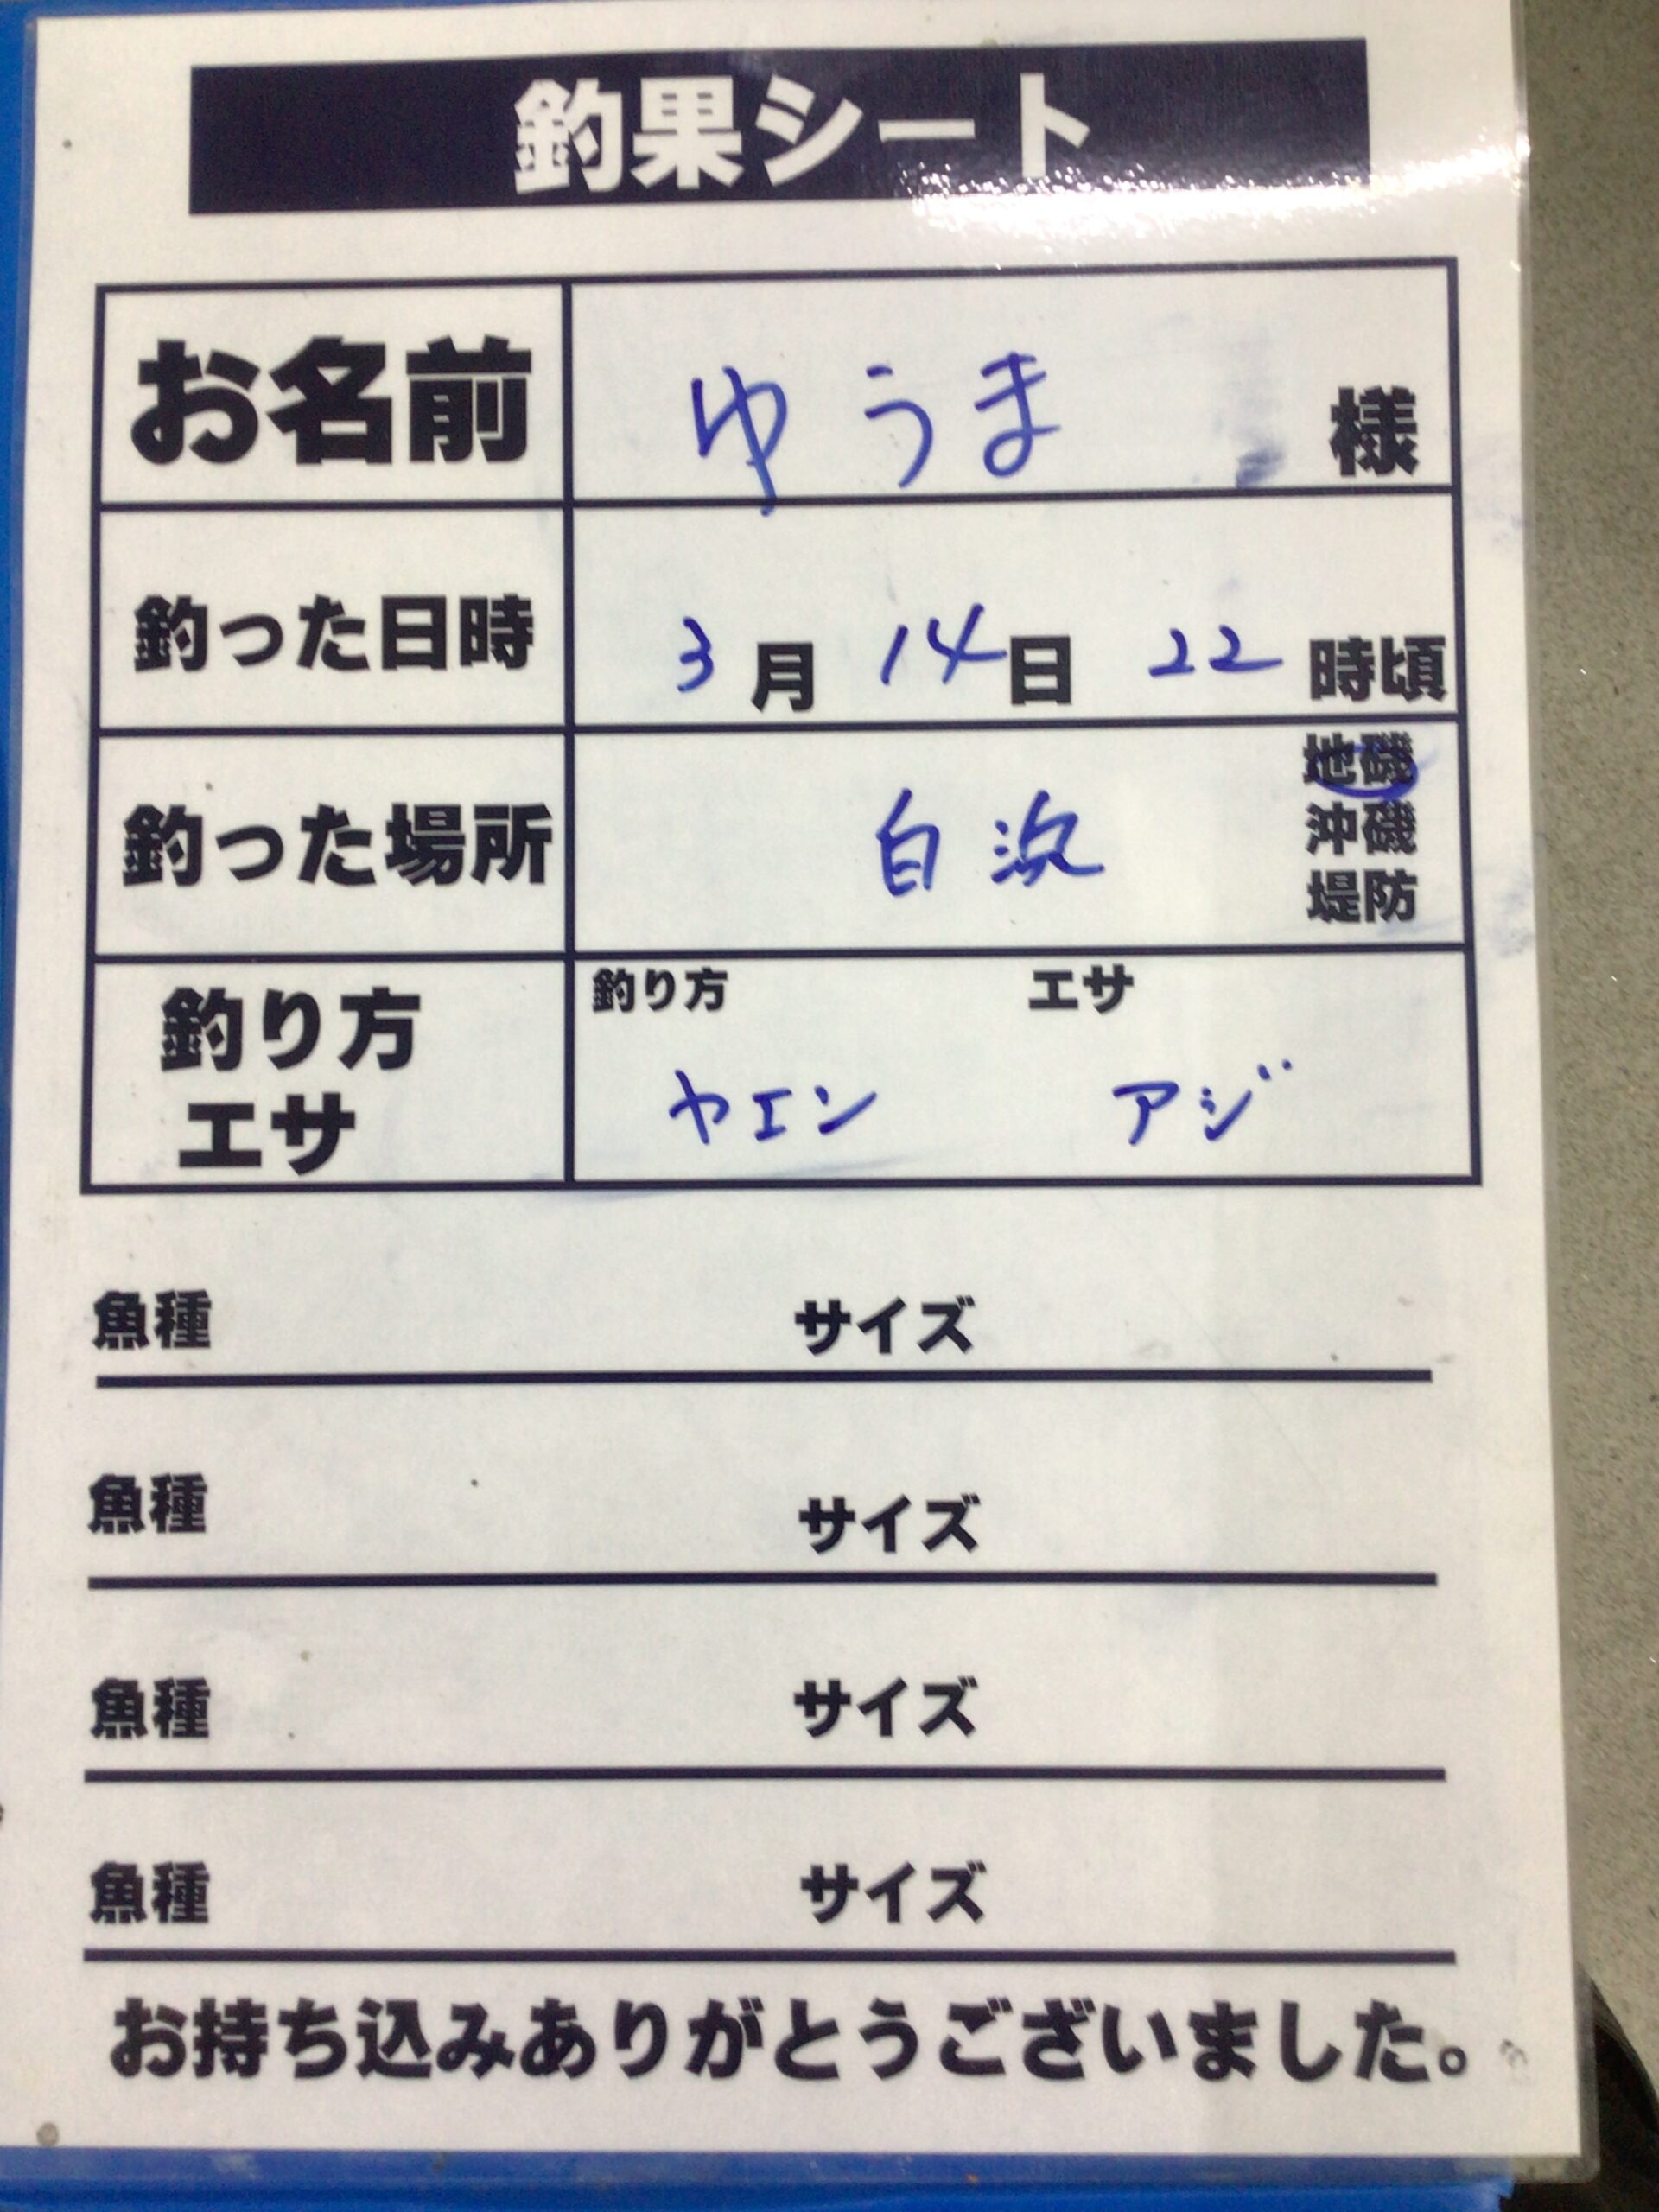 釣果シート
お名前 ゆうま 様
釣った日時 3月14日 22時頃
釣った場所 白浜 地磯
沖磯
堤防
釣り方 エサ
釣り方
エサ
ヤエン アジ
魚種 サイズ
魚種 サイズ
魚種 サイズ
魚種 サイズ
お持ち込みありがとうございました。